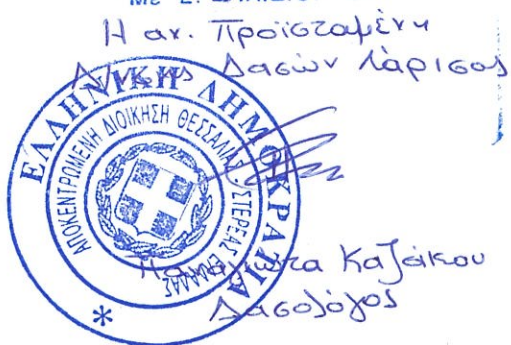 Η αν. Προϊσταμένη
Δ/νσης Δασών Λάρισας
ΕΛΛΗΝΙΚΗ ΔΗΜΟΚΡΑΤΙΑ
ΑΠΟΚΕΝΤΡΩΜΕΝΗ ΔΙΟΙΚΗΣΗ ΘΕΣΣΑΛΙΑΣ ΣΤΕΡΕΑΣ ΕΛΛΑΔΑΣ
Παναγιώτα Καζάκου
Δασολόγος